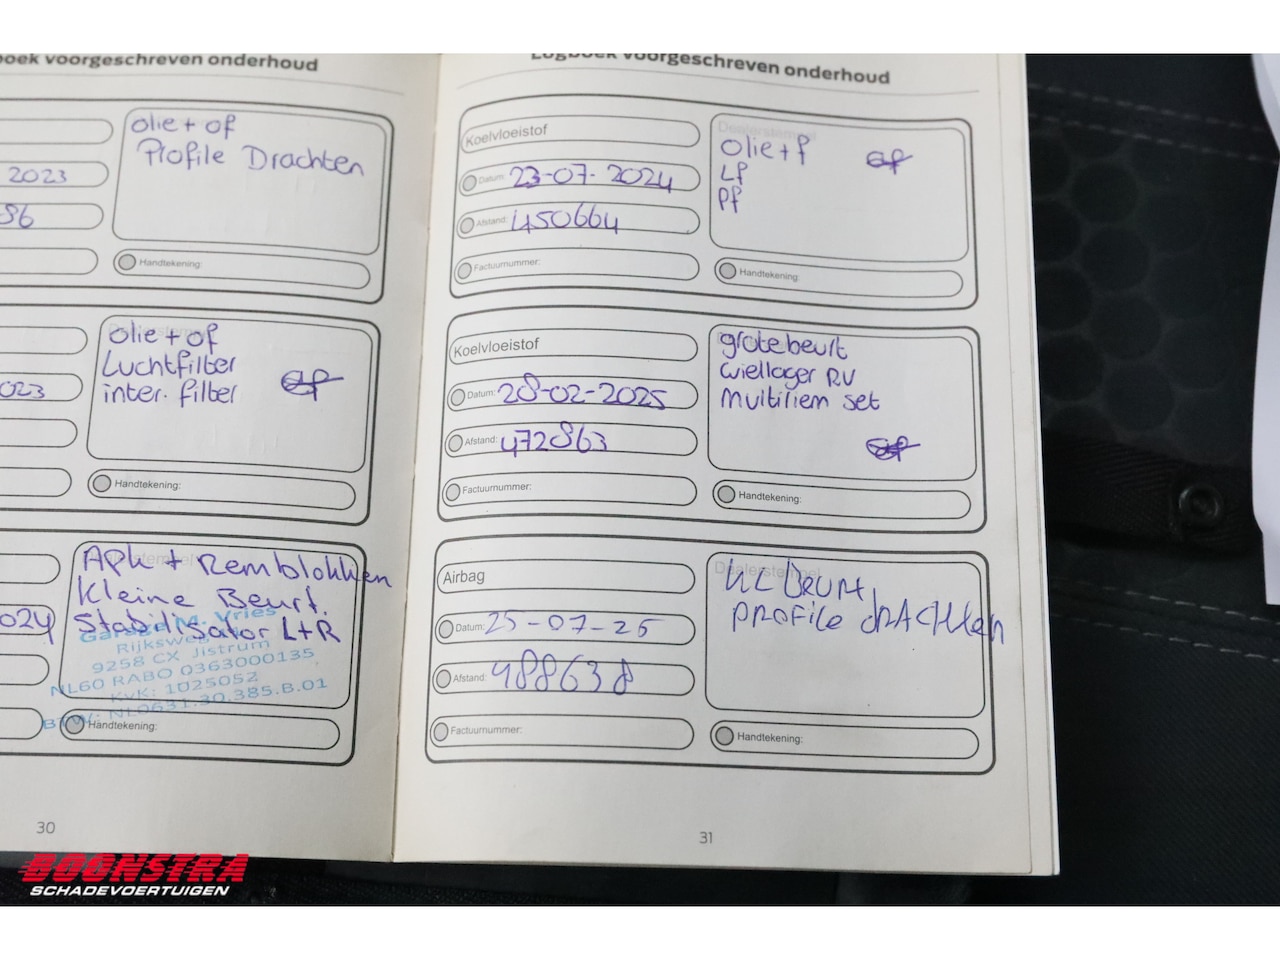 oek voorgeschreven onderhoud
olie + of
Profile Drachten
2023
Handtekening:
olie + of
Luchtfilter
inter. filter
023
Handtekening:
Apk + Remblokken
Kleine Beurt.
Stabilisator L+R
024
Garage M. Vries
9258 CX Jistrum
NL60 RABO 0363000135
KvK: 1025052
BTW: NL0631.30.385.B.01
Handtekening:
30
Logboek voorgeschreven onderhoud
Koelvloeistof
Datum: 23-07-2024
Afstand: 450664
Factuurnummer:
Dealerstempel
olie + f
Lf
Pf
Handtekening:
Koelvloeistof
Datum: 28-02-2025
Afstand: 472863
Factuurnummer:
grote beurt
wiellager RV
Multiriem set
Handtekening:
Airbag
Datum: 25-07-25
Afstand: 488638
Factuurnummer:
Dealerstempel
KL BEURT
PROFILE dRACHten
Handtekening:
31
BOONSTRA
SCHADEVOERTUIGEN